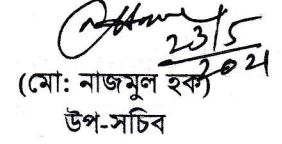 23/5
2021
(মো: নাজমুল হক)
উপ-সচিব